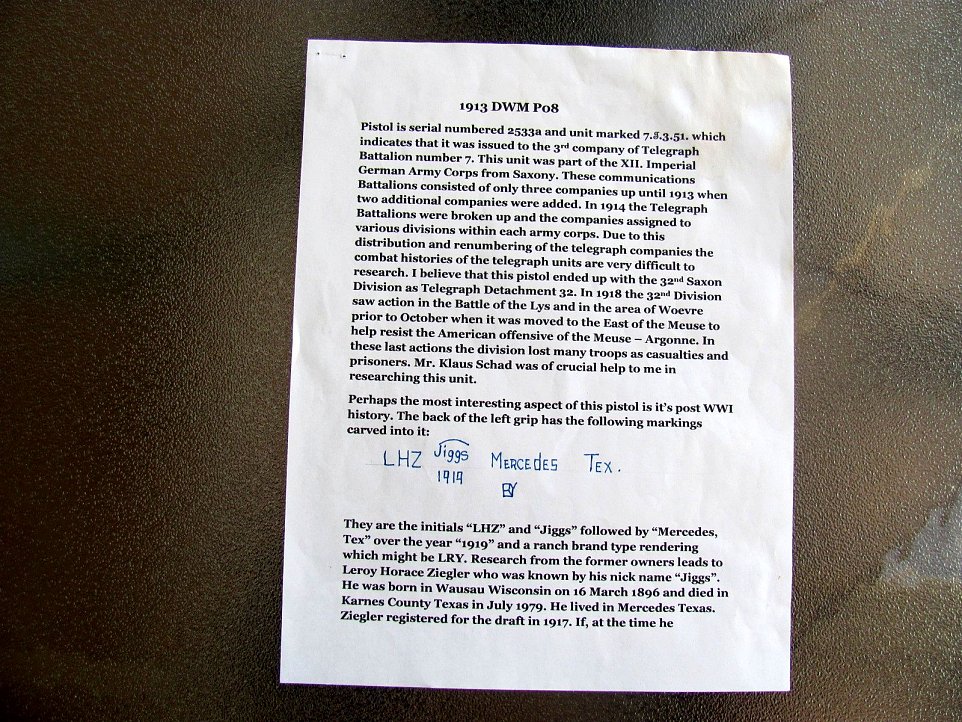 1913 DWM P08
Pistol is serial numbered 2533a and unit marked 7.S.3.51. which
indicates that it was issued to the 3rd company of Telegraph
Battalion number 7. This unit was part of the XII. Imperial
German Army Corps from Saxony. These communications
Battalions consisted of only three companies up until 1913 when
two additional companies were added. In 1914 the Telegraph
Battalions were broken up and the companies assigned to
various divisions within each army corps. Due to this
distribution and renumbering of the telegraph companies the
combat histories of the telegraph units are very difficult to
research. I believe that this pistol ended up with the 32nd Saxon
Division as Telegraph Detachment 32. In 1918 the 32nd Division
saw action in the Battle of the Lys and in the area of Woevre
prior to October when it was moved to the East of the Meuse to
help resist the American offensive of the Meuse – Argonne. In
these last actions the division lost many troops as casualties and
prisoners. Mr. Klaus Schad was of crucial help to me in
researching this unit.
Perhaps the most interesting aspect of this pistol is it's post WWI
history. The back of the left grip has the following markings
carved into it:
LHZ Jiggs MERCEDES TEX.
1919
They are the initials “LHZ” and “Jiggs” followed by “Mercedes,
Tex” over the year “1919” and a ranch brand type rendering
which might be LRY. Research from the former owners leads to
Leroy Horace Ziegler who was known by his nick name “Jiggs”.
He was born in Wausau Wisconsin on 16 March 1896 and died in
Karnes County Texas in July 1979. He lived in Mercedes Texas.
Ziegler registered for the draft in 1917. If, at the time he